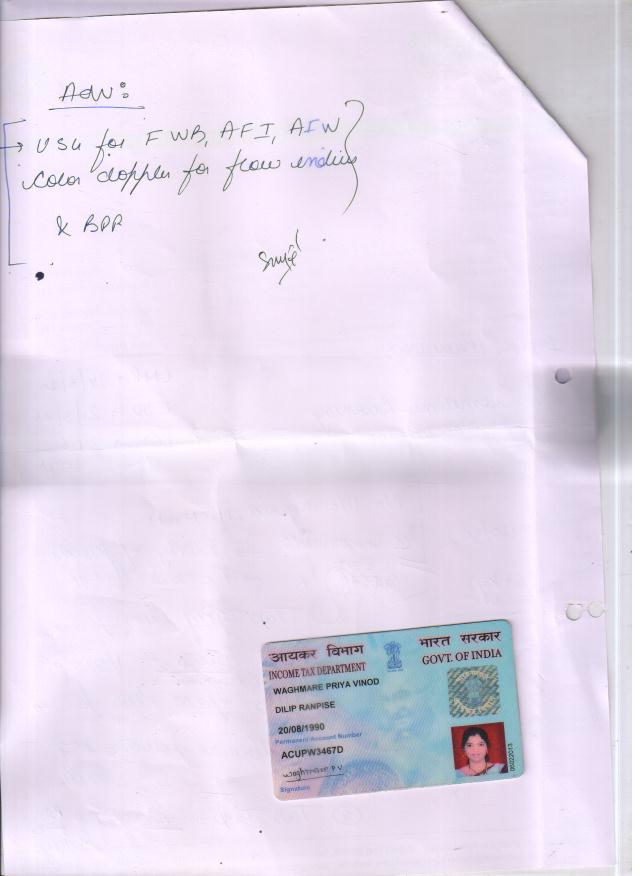 Adv:
→ USG for FWB, AFI, AFW
Color doppler for flow
& BPP
आयकर विभाग
INCOME TAX DEPARTMENT
भारत सरकार
GOVT. OF INDIA
WAGHMARE PRIYA VINOD
DILIP RANPISE
20/08/1990
Permanent Account Number
ACUPW3467D
Waghmare P.V.
Signature
05022013